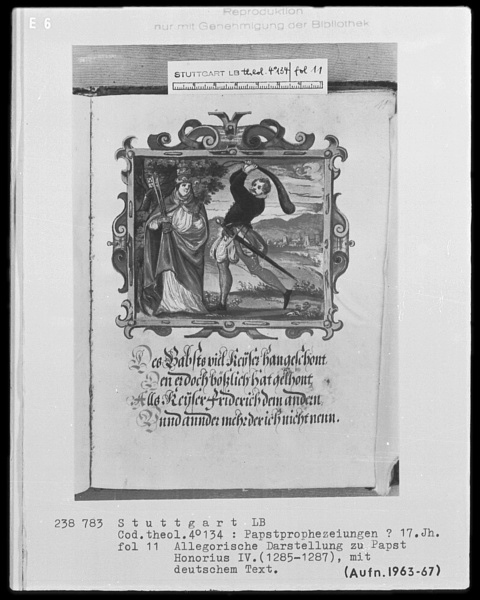 Reproduktion
nur mit Genehmigung der Bibliothek
E 6
STUTTGART LB theol. 4° 134 fol 11
Des Babsts viel Keyser han geschont
Den er doch bößlich hat gelhont
Alls Keyser Friderich dem andern
Vnnd annder mehr der ich nicht nenn.
238 783 Stuttgart LB
Cod.theol.4°134 : Papstprophezeiungen ? 17.Jh.
fol 11 Allegorische Darstellung zu Papst
Honorius IV.(1285-1287), mit
deutschem Text.
(Aufn.1963-67)